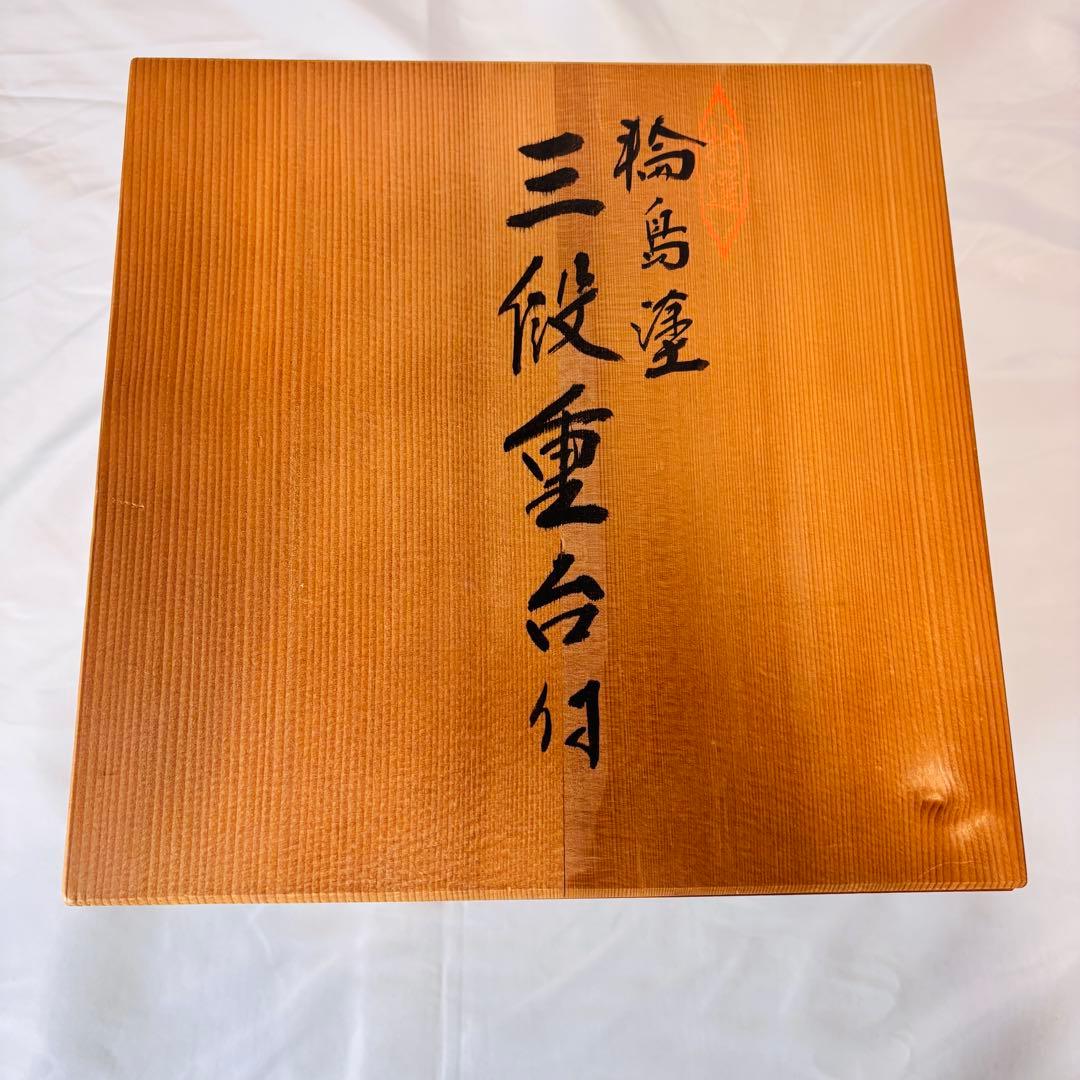 特選
輪島塗
三段重台付